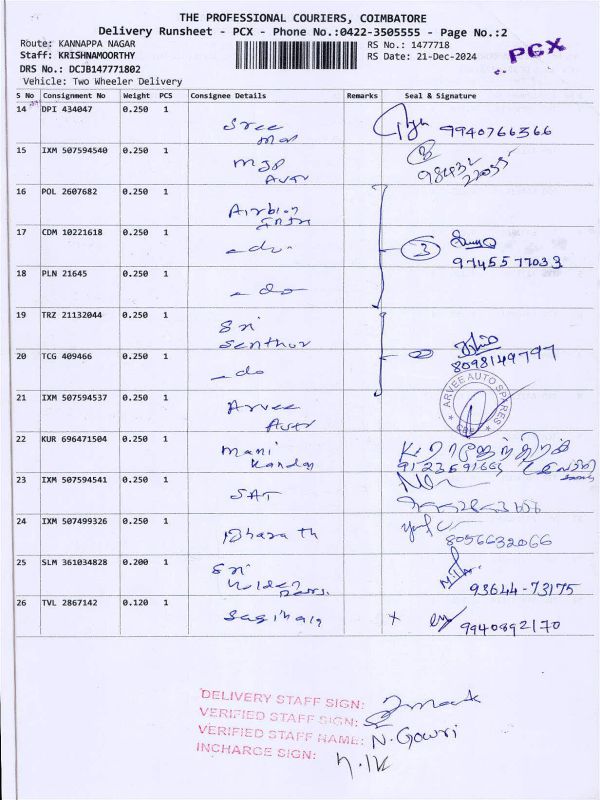 THE PROFESSIONAL COURIERS, COIMBATORE
Delivery Runsheet - PCX - Phone No.:0422-3505555 - Page No.:2
Route: KANNAPPA NAGAR
RS No.: 1477718
PCX
Staff: KRISHNAMOORTHY
RS Date: 21-Dec-2024
DRS No.: DCJB147771802
Vehicle: Two Wheeler Delivery
S No Consignment No Weight PCS Consignee Details Remarks Seal & Signature
14 DPI 434047 0.250 1 Sree
9940766366
15 IXM 507594540 0.250 1
98432
16 POL 2607682 0.250 1
17 CDM 10221618 0.250 1 - do -
3
9745577033
18 PLN 21645 0.250 1 - do
19 TRZ 21132044 0.250 1 Sri
Senthur
20 TCG 409466 0.250 1 - do
2
8098149797
21 IXM 507594537 0.250 1 Arvee
Auto
ARVEE AUTO SPARES
22 KUR 696471504 0.250 1 Mani
Kandan
23 IXM 507594541 0.250 1 SAT
24 IXM 507499326 0.250 1 Bharath
8056632066
25 SLM 361034828 0.200 1 Sri
93644-73175
26 TVL 2867142 0.120 1
x
9940892170
DELIVERY STAFF SIGN:
VERIFIED STAFF SIGN:
VERIFIED STAFF NAME: N. Gowri
INCHARGE SIGN: